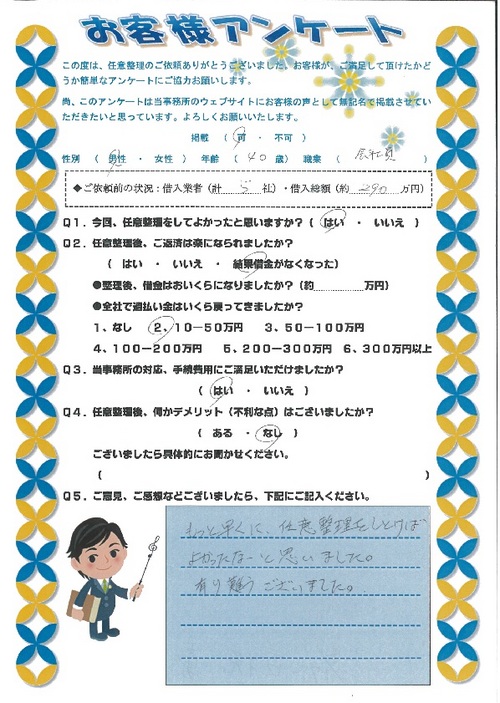 お客様アンケート
この度は、任意整理のご依頼ありがとうございました。お客様が、ご満足して頂けたかど
うか簡単なアンケートにご協力お願いします。
尚、このアンケートは当事務所のウェブサイトにお客様の声として無記名で掲載させてい
ただきたいと思っています。よろしくお願いいたします。
掲載 ( 可 ・ 不可 )
性別 ( 男性 ・ 女性 ) 年齢 ( 40 歳) 職業 ( 会社員 )
◆ご依頼前の状況:借入業者(計 5 社)・借入総額(約 290 万円)
Q1.今回、任意整理をしてよかったと思いますか?( はい ・ いいえ )
Q2.任意整理後、ご返済は楽になられましたか?
( はい ・ いいえ ・ 結果借金がなくなった)
●整理後、借金はおいくらになりましたか?(約 万円)
●全社で過払い金はいくら戻ってきましたか?
1、なし 2、10-50万円 3、50-100万円
4、100-200万円 5、200-300万円 6、300万円以上
Q3.当事務所の対応、手続費用にご満足いただけましたか?
( はい ・ いいえ )
Q4.任意整理後、何かデメリット(不利な点)はございましたか?
( ある ・ なし )
ございましたら具体的にお聞かせください。
( )
Q5.ご意見、ご感想などございましたら、下記にご記入ください。
もっと早くに、任意整理をしとけば
よかったなーと思いました。
有り難うございました。